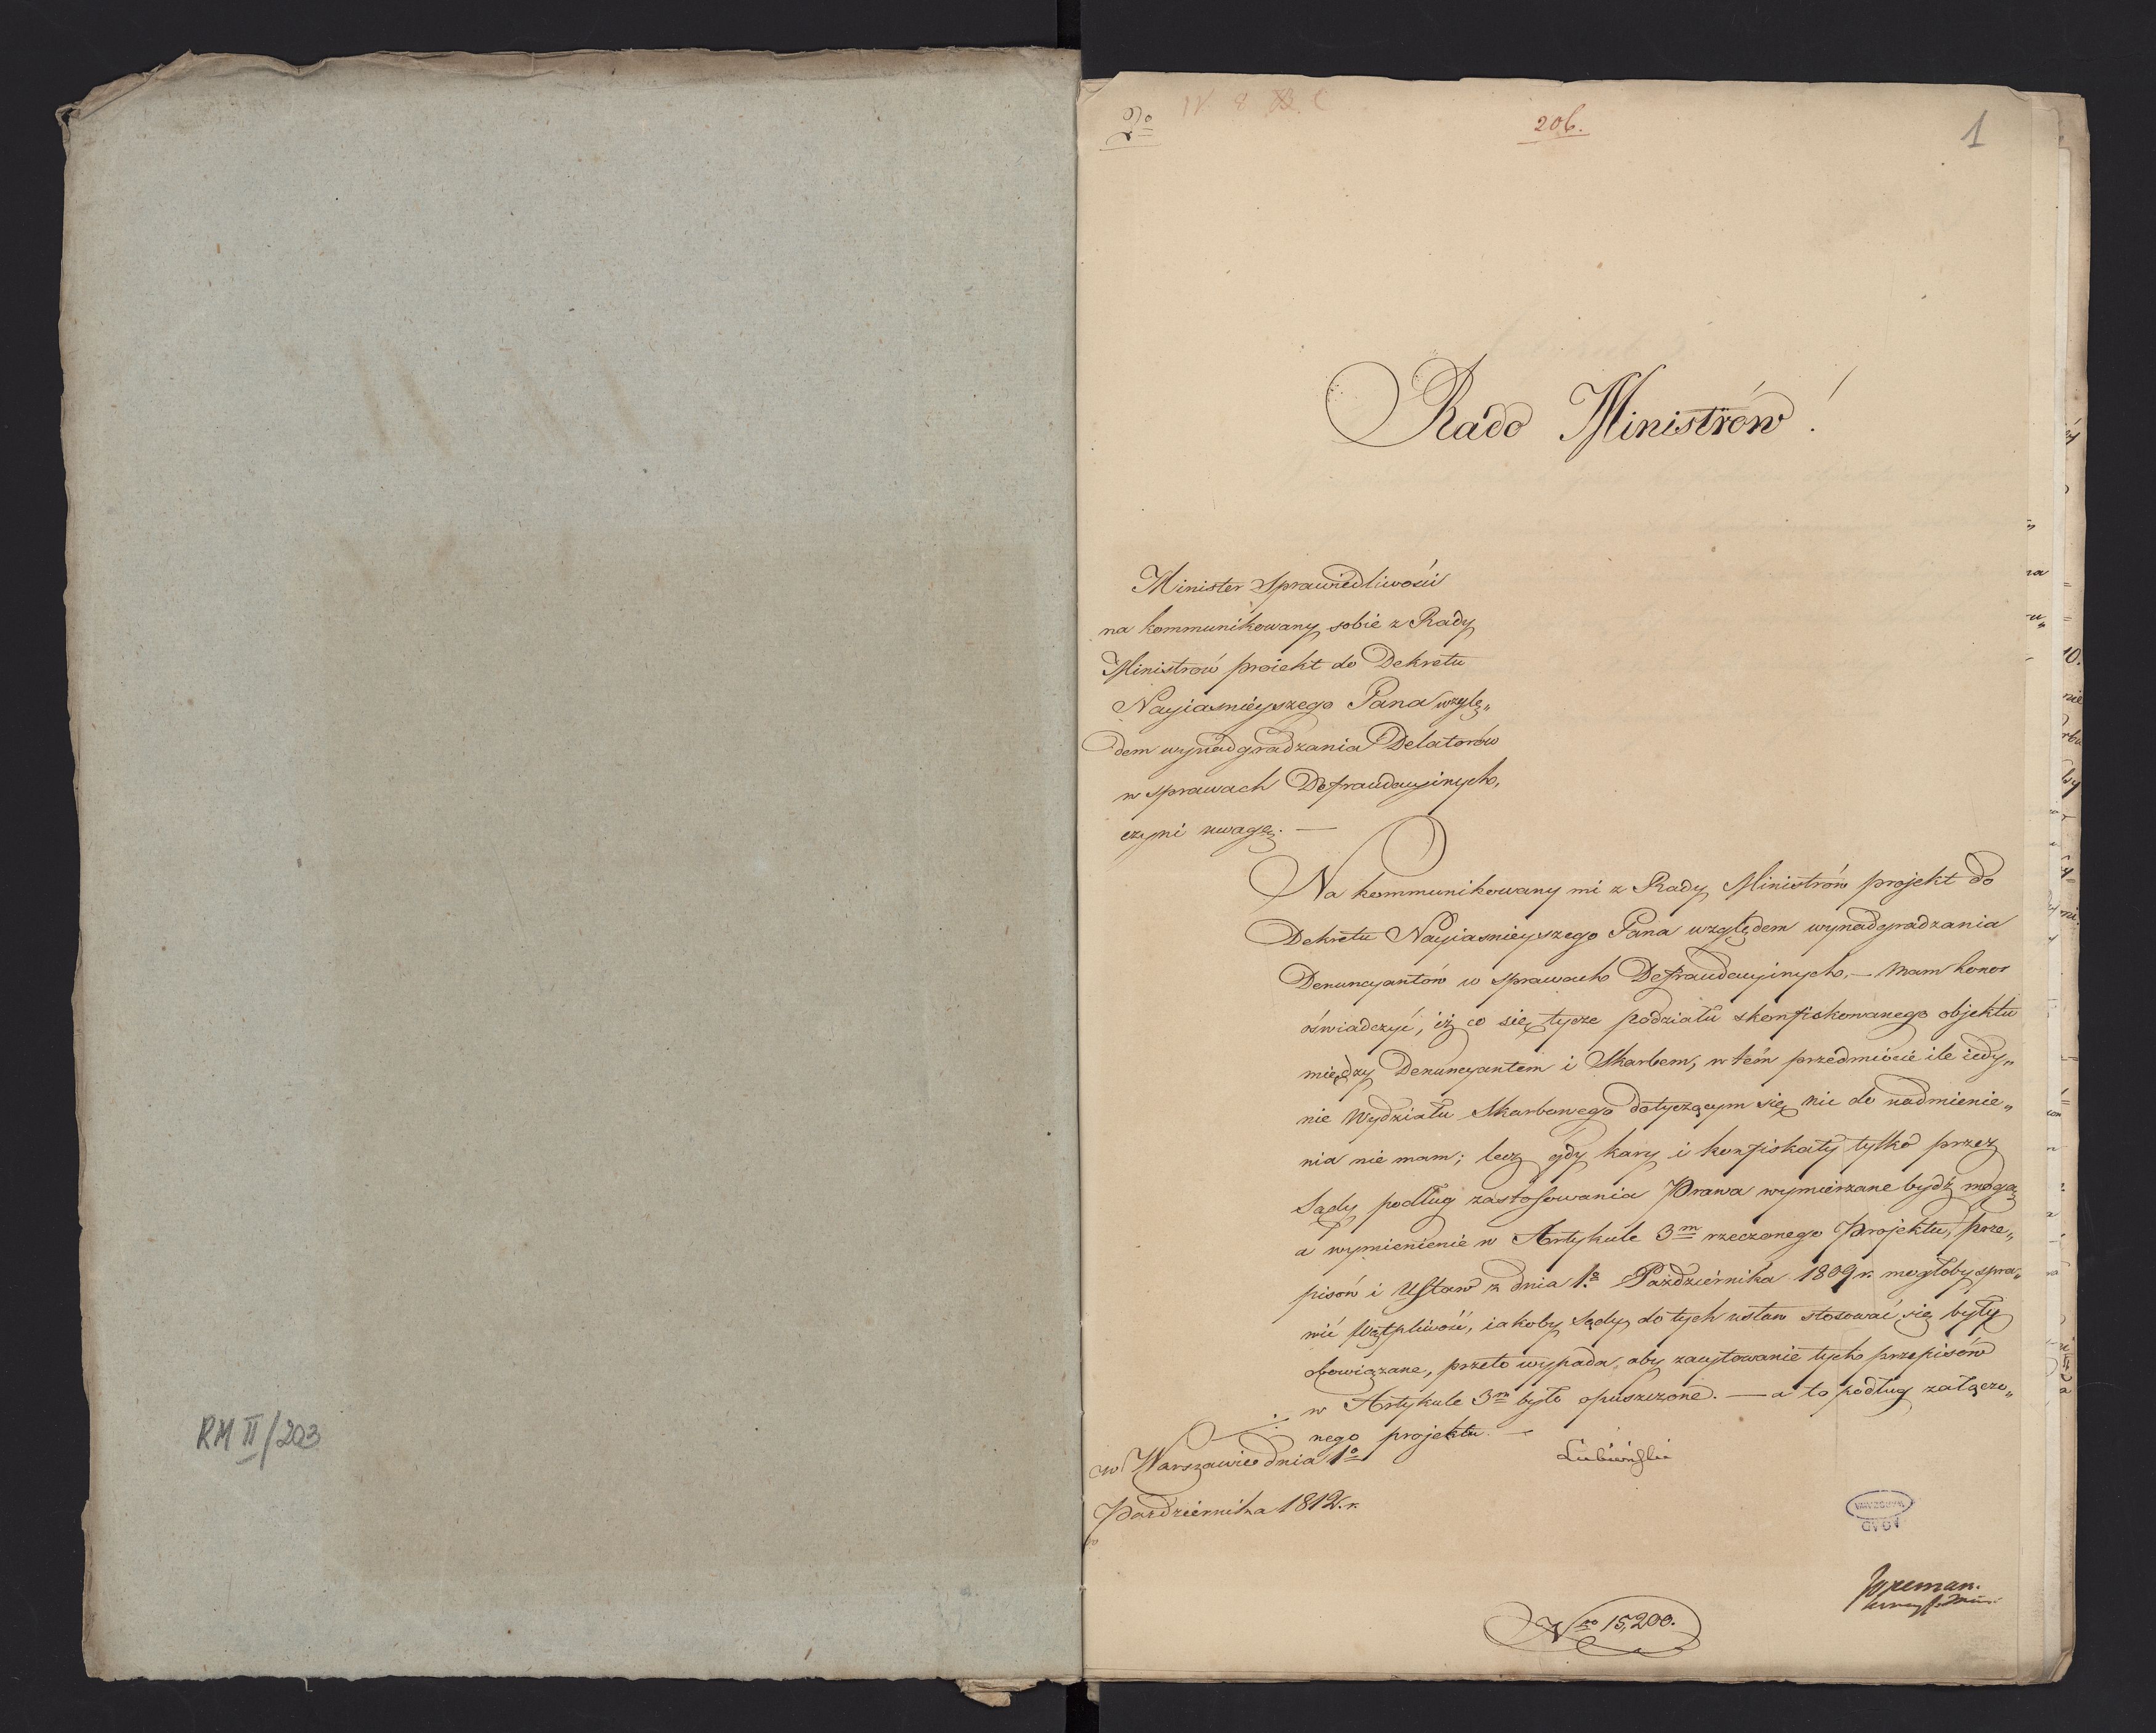 RM II/203
IV 8 B C
206.
1
Rado Ministrów!
Minister Sprawiedliwości
na kommunikowany sobie z Rady
Ministrów proiekt do Dekretu
Nayiaśnieyszego Pana wzglę„
dem wynadgradzania Delatorów
w sprawach Defraudacyinych,
czyni uwagę. —
Na kommunikowany mi z Rady Ministrów projekt do
Dekretu Nayiaśnieyszego Pana względem wynadgradzania
Denuncyantów w sprawach Defraudacyinych, — mam honor
oświadczyć, iż co się tycze podziału skonfiskowanego objektu
między Denuncyantem i Skarbem, w tém przedmiocie ile iedy„
nie Wydziału Skarbowego dotyczącym się nic do nadmienie„
nia nie mam; lecz gdy kary i konfiskaty tylko przez
Sądy podług zastosowania Prawa wymierzane bydź mogą
a wymienienie w Artykule 3m rzeczonego Projektu, prze„
pisów i Ustaw z dnia 1go Październiká 1809 r. mogłoby spra„
wić wątpliwość, iakoby Sądy do tych ustaw stosować się były
obowiązane, przeto wypada, aby zacytowanie tych przepisów
w Artykule 3m było opuszczone. — a to podług załączo„
nego projektu. —
w Warszawie dnia 1o
Października 1812. r.
Lubieński
WARSZAWA
AGAD
Nro 15,200.